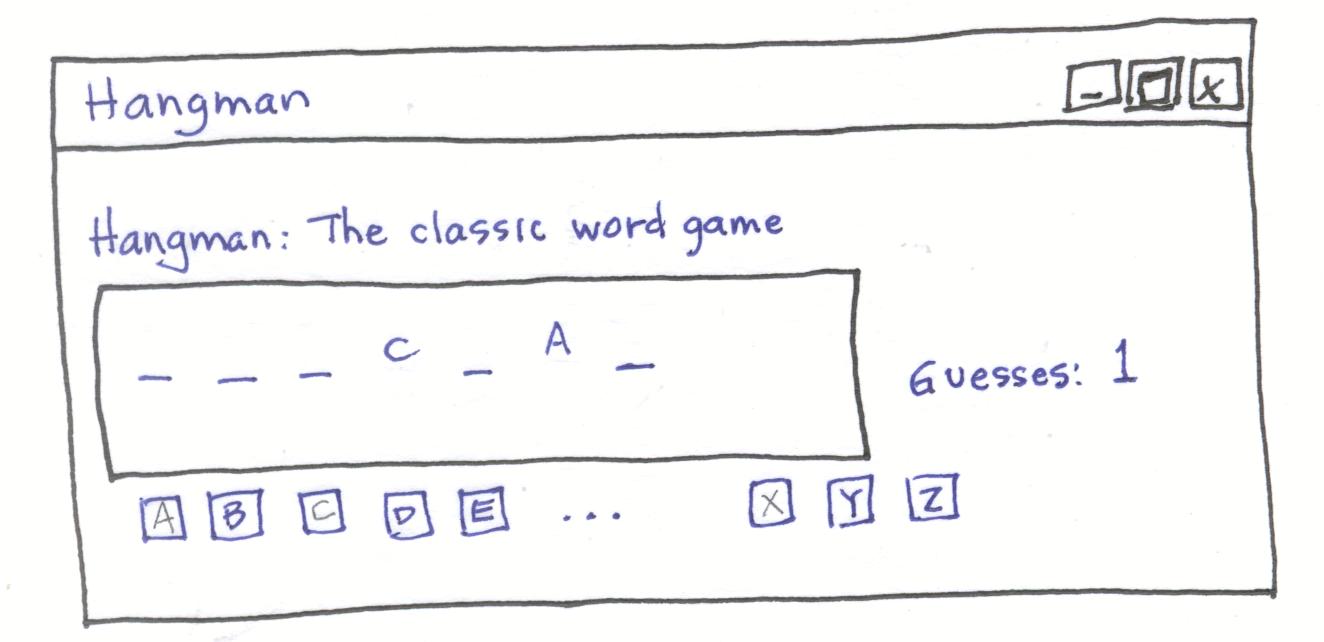 Hangman - □ X
Hangman: The classic word game
_ _ _ C _ A _
Guesses: 1
A B C D E ... X Y Z